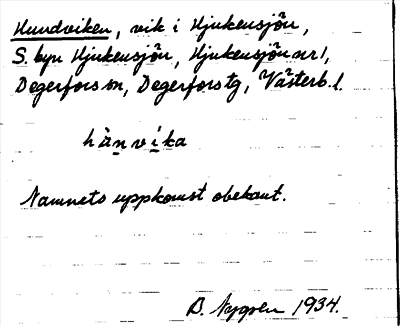 Hundviken, vik i Hjukensjön,
S. byn Hjukensjön, Hjukensjön nr 1,
Degerfors sn, Degerfors tg, Västerb. l.
hänvika
Namnets uppkomst obekant.
B. Nygren 1934.